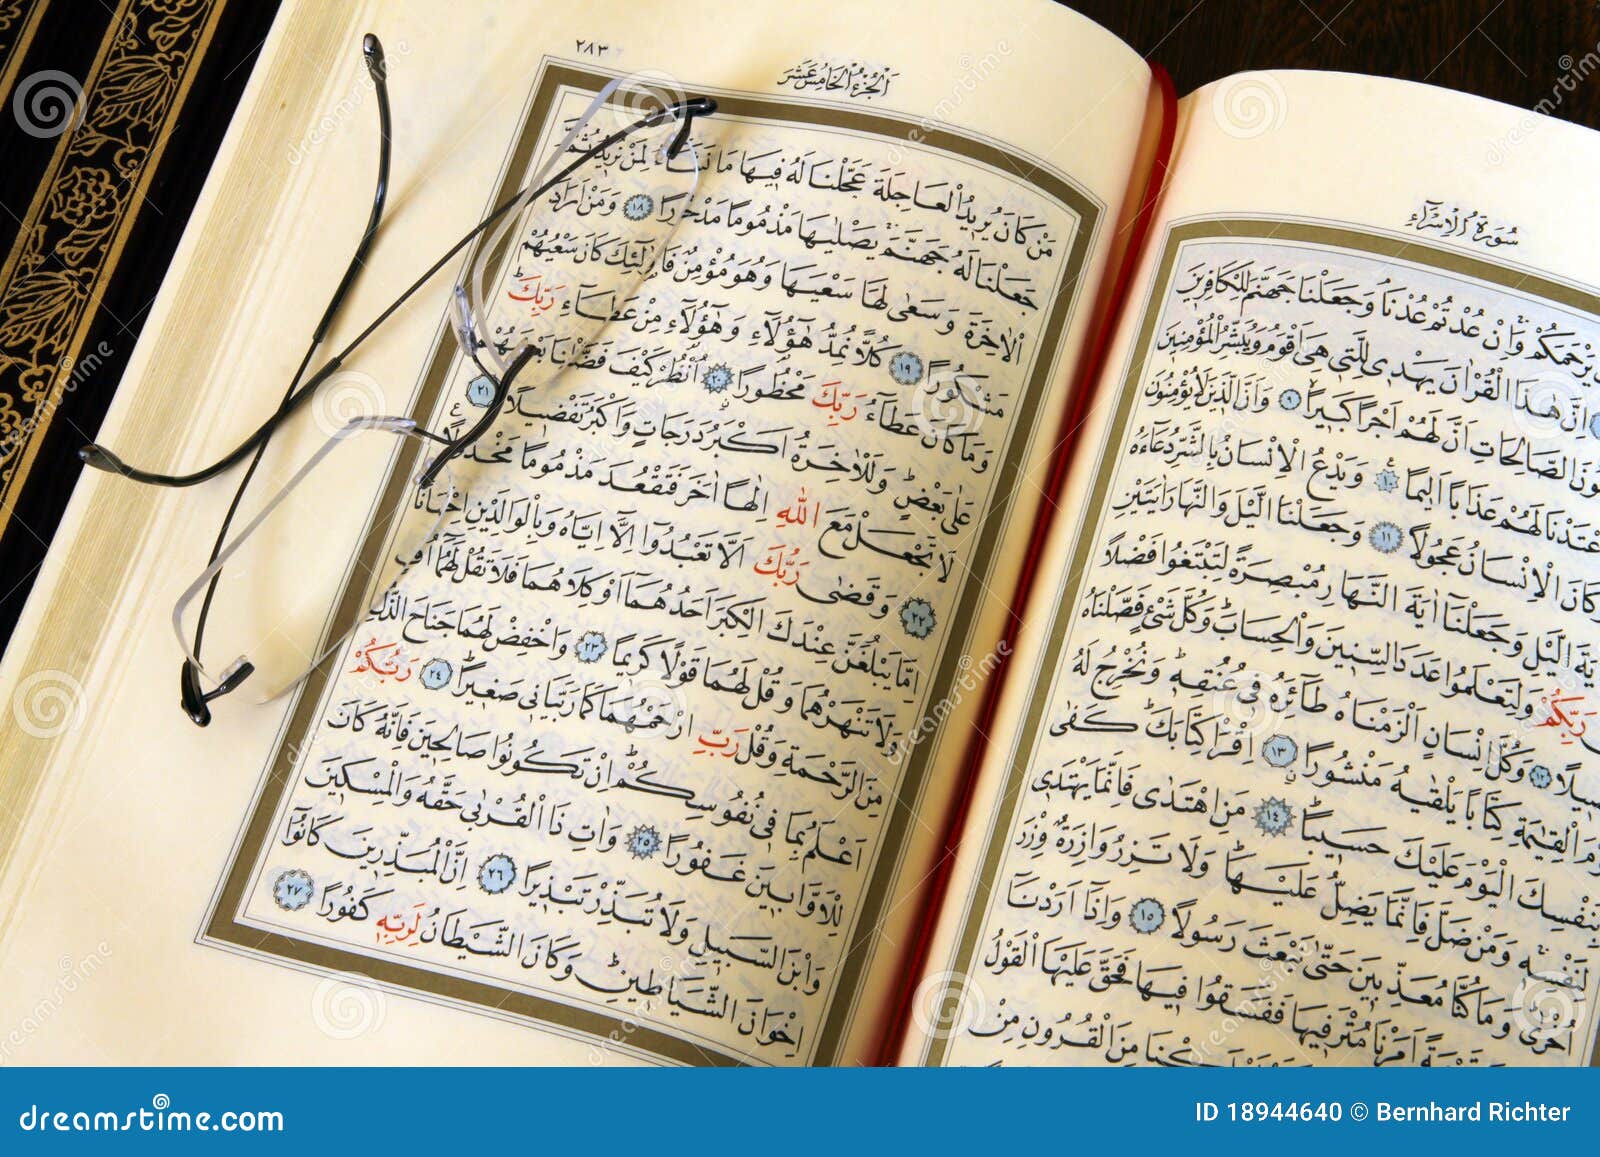 سُورَةُ الْاِسْرَاءِ
يَرْحَمَكُمْ وَاِنْ عُدْتُمْ عُدْنَا وَجَعَلْنَا جَهَنَّمَ لِلْكَافِرِينَ
اِنَّ هٰذَا الْقُرْاٰنَ يَهْدِي لِلَّتِي هِيَ اَقْوَمُ وَيُبَشِّرُ الْمُؤْمِنِينَ
الصَّالِحَاتِ اَنَّ لَهُمْ اَجْرًا كَبِيرًا ٩ وَاَنَّ الَّذِينَ لَا يُؤْمِنُونَ
لَهُمْ عَذَابًا اَلِيمًا ١٠ وَيَدْعُ الْاِنْسَانُ بِالشَّرِّ دُعَاءَهُ
وَكَانَ الْاِنْسَانُ عَجُولًا ١١ وَجَعَلْنَا الَّيْلَ وَالنَّهَارَ اٰيَتَيْنِ
الَّيْلِ وَجَعَلْنَا اٰيَةَ النَّهَارِ مُبْصِرَةً لِتَبْتَغُوا فَضْلًا
رَبِّكُمْ وَلِتَعْلَمُوا عَدَدَ السِّنِينَ وَالْحِسَابَ وَكُلَّ شَيْءٍ فَصَّلْنَاهُ
١٢ وَكُلَّ اِنْسَانٍ اَلْزَمْنَاهُ طَائِرَهُ فِي عُنُقِهِ وَنُخْرِجُ لَهُ
الْقِيٰمَةِ كِتَابًا يَلْقٰيهُ مَنْشُورًا ١٣ اِقْرَأْ كِتَابَكَ كَفٰى
بِنَفْسِكَ الْيَوْمَ عَلَيْكَ حَسِيبًا ١٤ مَنِ اهْتَدٰى فَاِنَّمَا يَهْتَدِي
لِنَفْسِهِ وَمَنْ ضَلَّ فَاِنَّمَا يَضِلُّ عَلَيْهَا وَلَا تَزِرُ وَازِرَةٌ وِزْرَ
اُخْرٰى وَمَا كُنَّا مُعَذِّبِينَ حَتّٰى نَبْعَثَ رَسُولًا ١٥ وَاِذَا اَرَدْنَا
اَمَرْنَا مُتْرَفِيهَا فَفَسَقُوا فِيهَا فَحَقَّ عَلَيْهَا الْقَوْلُ
مِنَ الْقُرُونِ مِنْ
اَلْجُزْءُ الْخَامِسُ عَشَرَ
٢٨٣
مَنْ كَانَ يُرِيدُ الْعَاجِلَةَ عَجَّلْنَا لَهُ فِيهَا مَا نَشَاءُ لِمَنْ نُرِيدُ ثُمَّ
جَعَلْنَا لَهُ جَهَنَّمَ يَصْلٰيهَا مَذْمُومًا مَدْحُورًا ١٨ وَمَنْ اَرَادَ
الْاٰخِرَةَ وَسَعٰى لَهَا سَعْيَهَا وَهُوَ مُؤْمِنٌ فَاُولٰئِكَ كَانَ سَعْيُهُمْ
مَشْكُورًا ١٩ كُلًّا نُمِدُّ هٰؤُلَاءِ وَهٰؤُلَاءِ مِنْ عَطَاءِ رَبِّكَ
وَمَا كَانَ عَطَاءُ رَبِّكَ مَحْظُورًا ٢٠ اُنْظُرْ كَيْفَ فَضَّلْنَا بَعْضَهُمْ
عَلٰى بَعْضٍ وَلَلْاٰخِرَةُ اَكْبَرُ دَرَجَاتٍ وَاَكْبَرُ تَفْضِيلًا ٢١
لَا تَجْعَلْ مَعَ اللّٰهِ اِلٰهًا اٰخَرَ فَتَقْعُدَ مَذْمُومًا مَخْذُولًا
٢٢ وَقَضٰى رَبُّكَ اَلَّا تَعْبُدُوا اِلَّا اِيَّاهُ وَبِالْوَالِدَيْنِ اِحْسَانًا
اِمَّا يَبْلُغَنَّ عِنْدَكَ الْكِبَرَ اَحَدُهُمَا اَوْ كِلَاهُمَا فَلَا تَقُلْ لَهُمَا اُفٍّ
وَلَا تَنْهَرْهُمَا وَقُلْ لَهُمَا قَوْلًا كَرِيمًا ٢٣ وَاخْفِضْ لَهُمَا جَنَاحَ الذُّلِّ
مِنَ الرَّحْمَةِ وَقُلْ رَبِّ ارْحَمْهُمَا كَمَا رَبَّيَانِي صَغِيرًا ٢٤ رَبُّكُمْ
اَعْلَمُ بِمَا فِي نُفُوسِكُمْ اِنْ تَكُونُوا صَالِحِينَ فَاِنَّهُ كَانَ
لِلْاَوَّابِينَ غَفُورًا ٢٥ وَاٰتِ ذَا الْقُرْبٰى حَقَّهُ وَالْمِسْكِينَ
وَابْنَ السَّبِيلِ وَلَا تُبَذِّرْ تَبْذِيرًا ٢٦ اِنَّ الْمُبَذِّرِينَ كَانُوا
اِخْوَانَ الشَّيَاطِينِ وَكَانَ الشَّيْطَانُ لِرَبِّهِ كَفُورًا ٢٧
dreamstime.com
ID 18944640 © Bernhard Richter